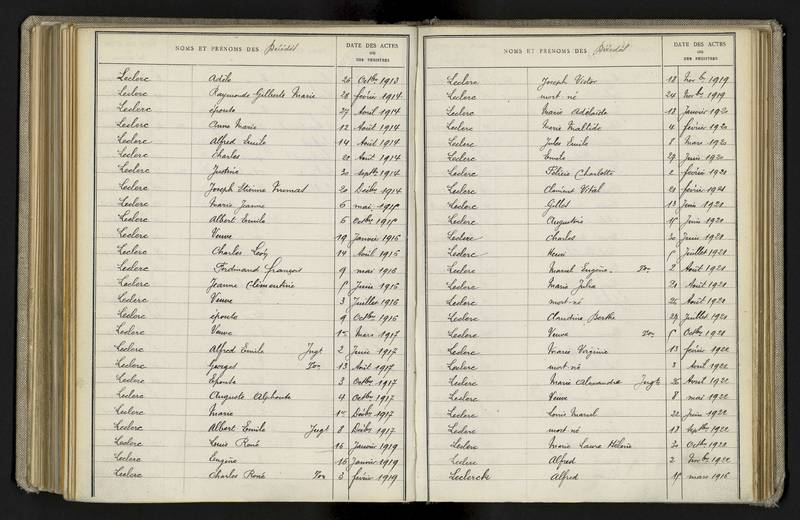 NOMS ET PRÉNOMS DES Décédés
DATE DES ACTES
OU
DES REGISTRES
Leclerc Adèle 20 Octbre 1913
Leclerc Raymonde Gilberte Marie 28 février 1914
Leclerc épouse 27 Avril 1914
Leclerc Anna Marie 12 Août 1914
Leclerc Alfred Emile 14 Août 1914
Leclerc Charles 20 Août 1914
Leclerc Justine 20 septbre 1914
Leclerc Joseph Etienne 20 Décbre 1914
Leclerc Marie Jeanne 6 mai
Leclerc Albert Emile 6 Octbre
Leclerc Veuve 19 Janvier 1916
Leclerc Charles 14 Avril 1916
Leclerc Ferdinand François 9 mai 1916
Leclerc Jeanne Clémentine Juin 1916
Leclerc Veuve 3 Juillet 1916
Leclerc épouse 9 Octbre 1916
Leclerc Veuve 1er Mars 1917
Leclerc Alfred Emile Jugt 2 Juin 1917
Leclerc Ton 13 Août 1917
Leclerc Epouse 3 Octbre 1917
Leclerc Auguste Alphonse 4 Octbre 1917
Leclerc Marie 1er Décbre 1917
Leclerc Albert Emile Jugt 8 Décbre 1917
Leclerc Louis René 16 Janvier 1919
Leclerc Eugène 16 Janvier 1919
Leclerc Charles René Ton 3 février 1919
NOMS ET PRÉNOMS DES Décédés
DATE DES ACTES
OU
DES REGISTRES
Leclerc Joseph Victor 18 Novbre 1919
Leclerc mort né 24 Novbre 1919
Leclerc Marie Adélaïde 13 Janvier 1920
Leclerc Marie Mathilde 4 février 1920
Leclerc Jules Emile 8 Mars 1920
Leclerc Emile 29 Juin 1920
Leclerc Félicie Charlotte 2 février 1921
Leclerc Clément Vital 20 février 1921
Leclerc Gillot 13 Juin 1921
Leclerc Augustine Juin 1921
Leclerc Charles 30 Juin 1921
Leclerc Henri Juillet 1921
Leclerc Marcel Eugène Ton 2 Août 1921
Leclerc Marie Julia 20 Août 1921
Leclerc mort-né 26 Août 1921
Leclerc Claudine Berthe 29 Juillet 1921
Leclerc Veuve Ton Octbre 1921
Leclerc Marie Virginie 13 février 1922
Leclerc mort né 3 Avril 1922
Leclerc Marie Alexandre Jugt 26 Avril 1922
Leclerc Veuve 8 mai 1922
Leclerc Louis Marcel 22 Juin 1922
Leclerc mort né 13 septbre 1922
Leclerc Marie Laure Hélène 30 Octbre 1922
Leclerc Alfred 2 Novbre 1922
Leclerck Alfred mars 1916